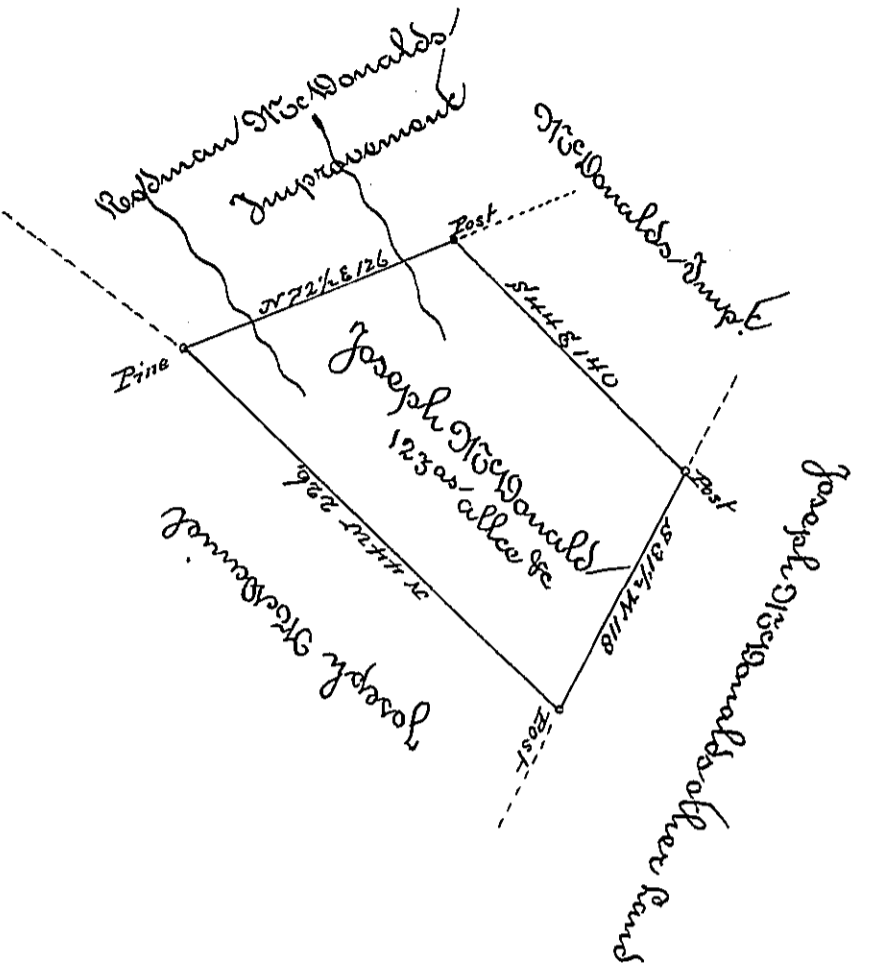 Rossman McDonalds
Improvement
McDonalds Imp.t
Post
N 72 1/2 E 126
S 44 E 140
Pine
Joseph McDonald
123 as allce &c
Post
S 31 1/2 W 118
N 44 W 226
Joseph McDaniel
Post
Joseph McDonalds other land